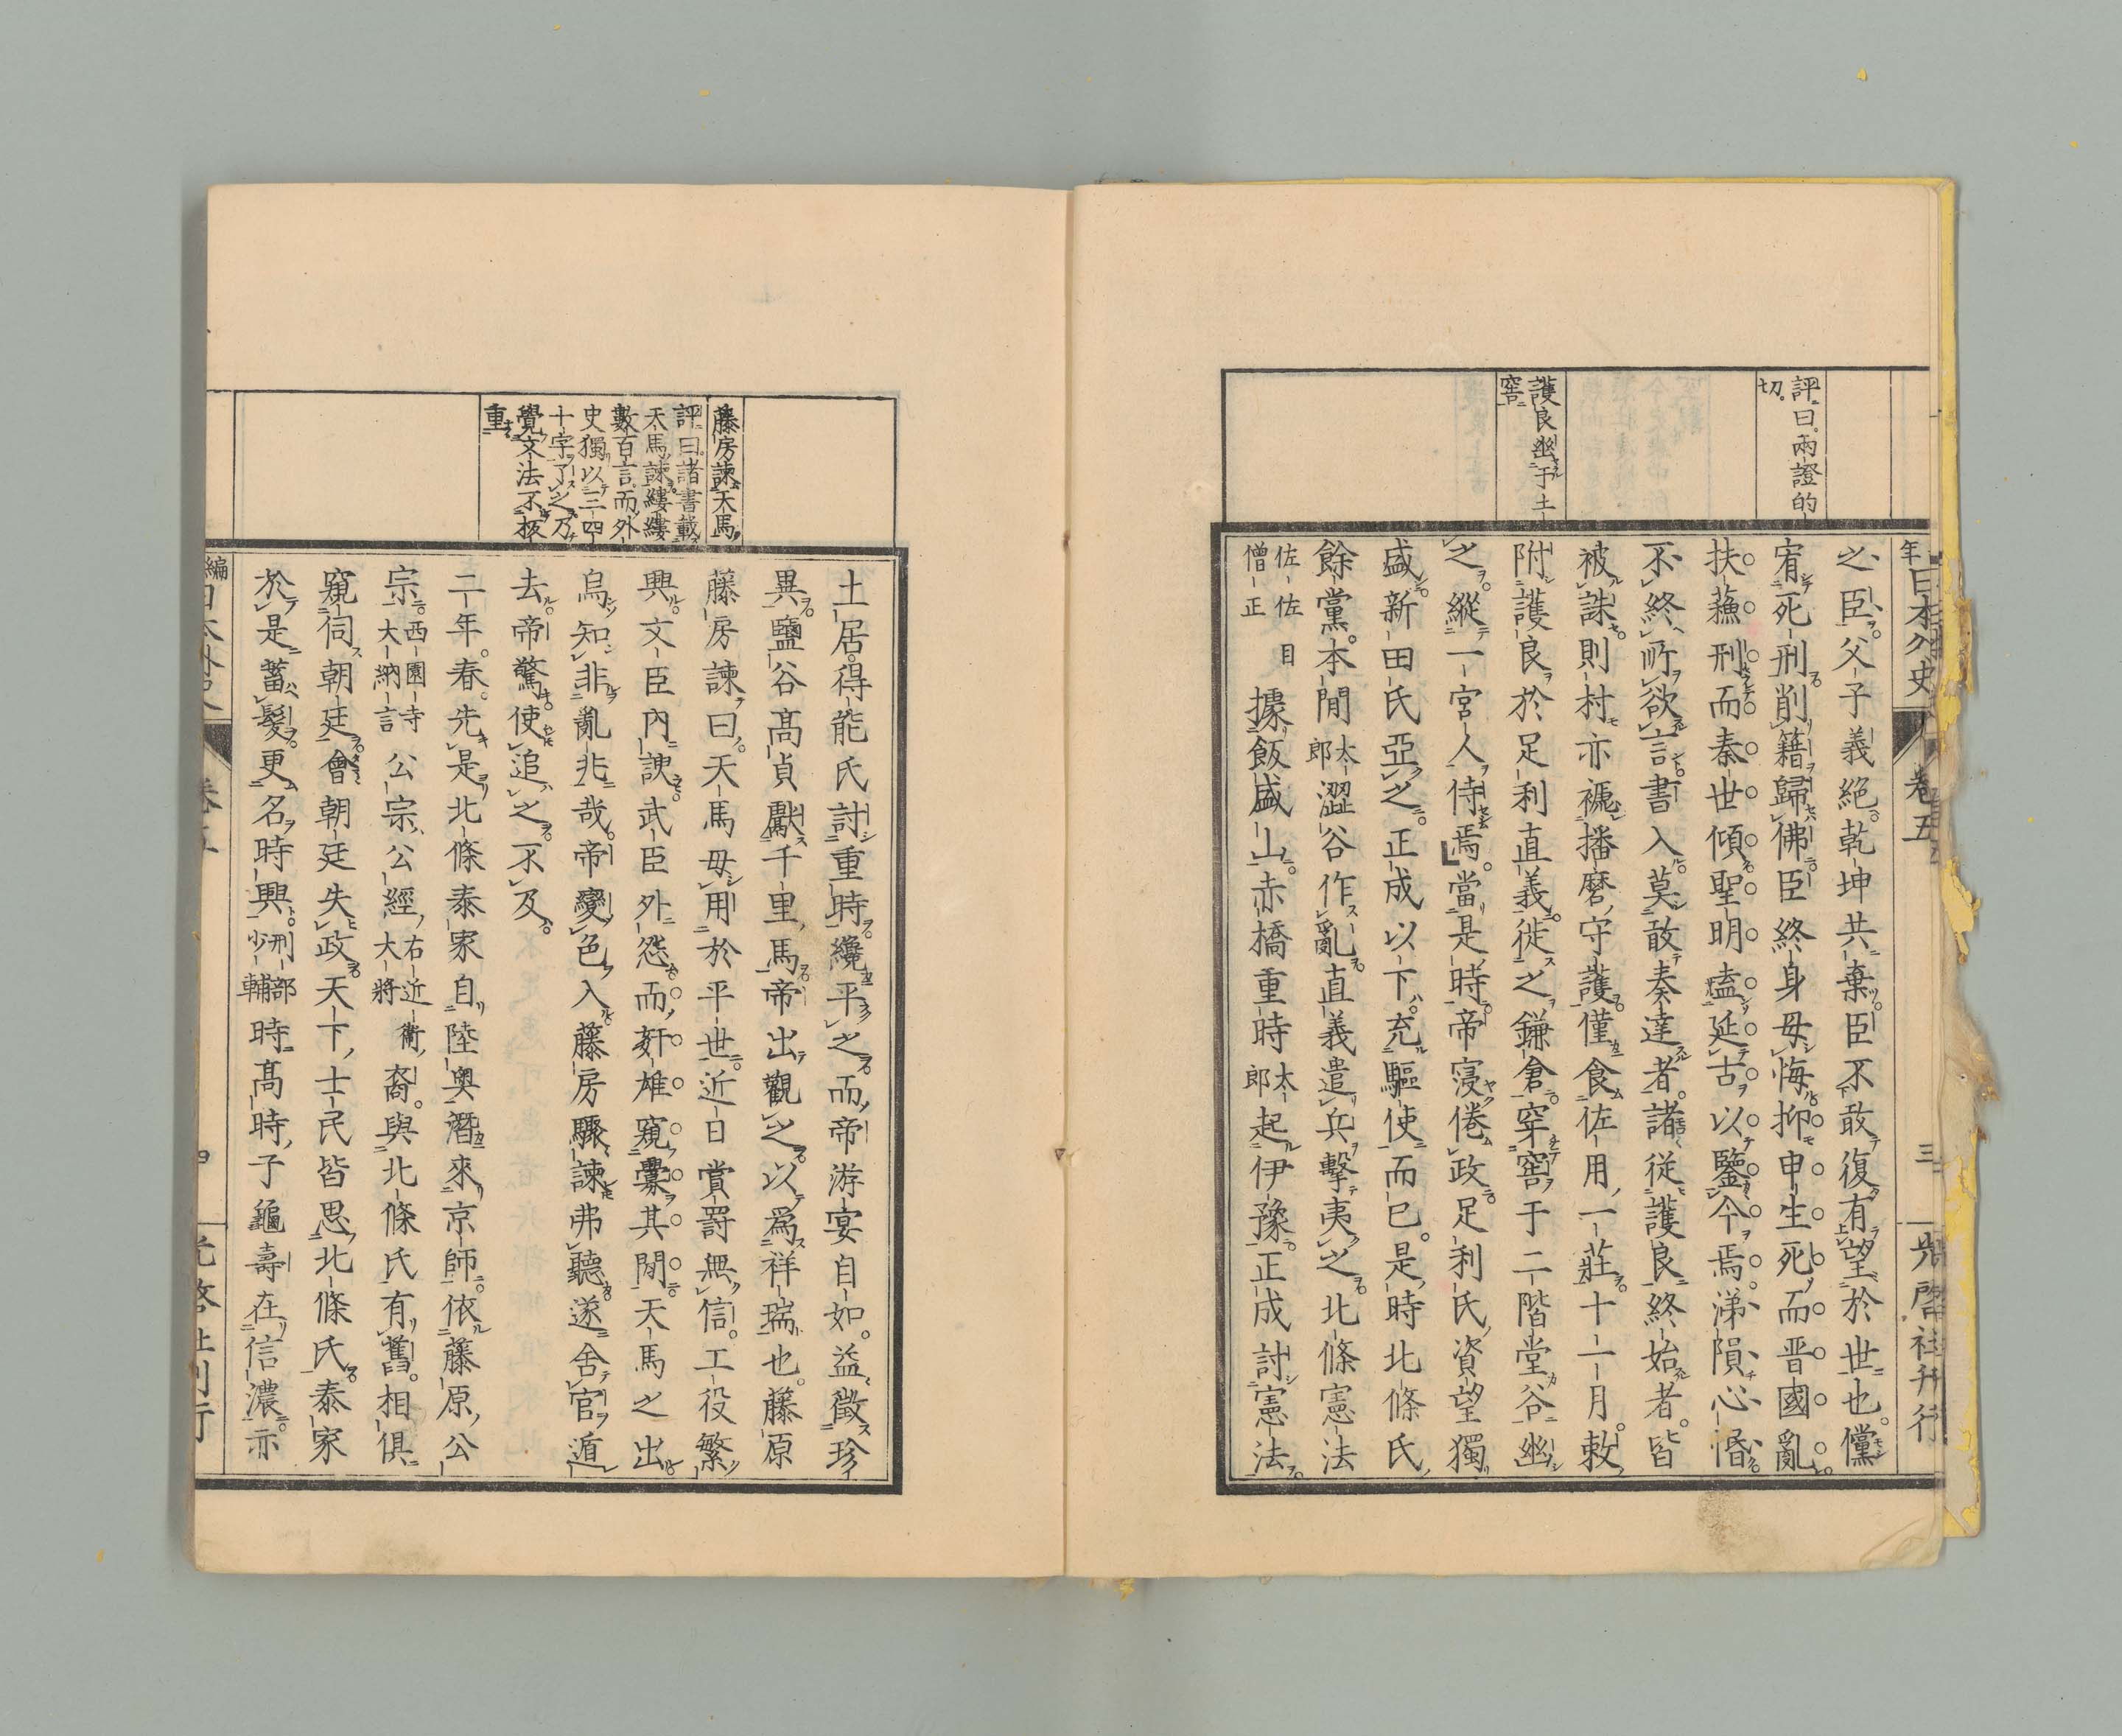 評曰。兩證的
切。
護良幽于土
窖
年日本外史
卷五
三
光啓社刊行
之臣。父子義絕。乾坤共棄。臣不敢復有望於世也。儻
宥死刑。削籍歸佛。臣終身毋悔。抑申生死而晋國亂。
扶蘓刑而秦世傾。聖明盍延古以鑒今焉。涕隕心惛。
不終所欲言。書入。莫敢奏達者。諸從護良終始者。皆
被誅。則村亦褫播磨守護。僅食佐用一莊。十一月。敕
附護良於足利直義。徙之鎌倉。穿窖于二階堂谷幽
之。縱一宮人侍焉。當是時。帝寖倦政。足利氏資望獨
盛。新田氏亞之。正成以下。充驅使而已。是時北條氏
餘黨。本間太郎澀谷作亂。直義遣兵擊夷之。北條憲法
佐佐目
僧正
據飯盛山。赤橋重時太郎起伊豫。正成討憲法。
藤房諫天馬
評曰。諸書載
天馬諫。縷縷
數百言。而外
史獨以三四
十字了之。乃
覺文法不板
重
土居。得能氏討重時。纔平之。而帝游宴自如。益徵珍
異。鹽谷高貞獻千里馬。帝出觀之。以爲祥瑞也。藤原
藤房諫曰。天馬毋用於平世。近日賞罰無信。工役繁
興。文臣內諛。武臣外怨。而奸雄窺釁其間。天馬之出
烏知非亂兆哉。帝變色入。藤房驟諫弗聽。遂舍官遁
去。帝驚使追之。不及。
二年。春。先是北條泰家自陸奧潛來京師。依藤原公
宗。西園寺大納言公宗。公經右近衞大將裔。與北條氏有舊。相俱
窺伺朝廷。會朝廷失政。天下士民皆思北條氏。泰家
於是蓄髮。更名時興。刑部少輔時高時子龜壽在信濃。亦
編
卷五